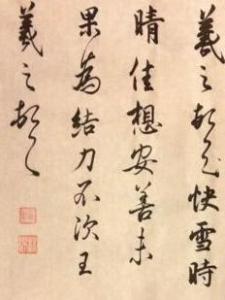 羲之頓首快雪時
晴佳想安善未
果為結力不次王
羲之頓首